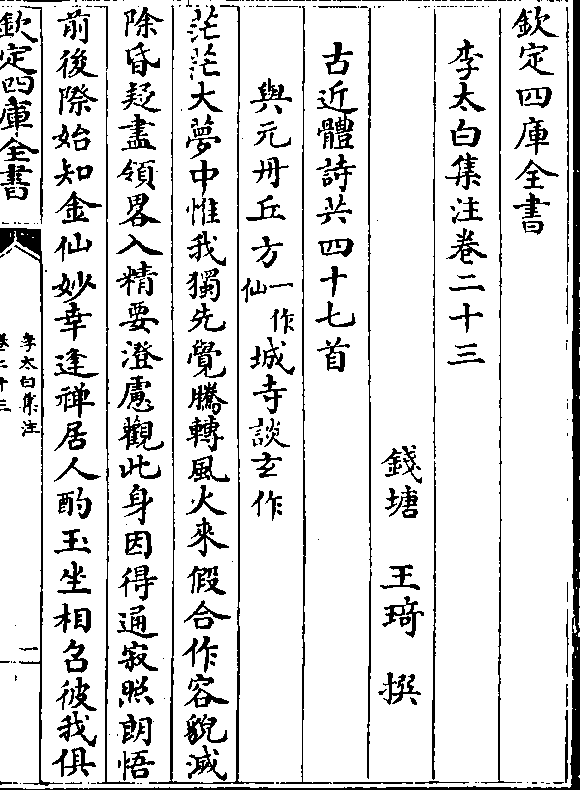 欽定四庫全書
李太白集注卷二十三
錢塘 王琦 撰
古近體詩共四十七首
與元丹丘方一作仙城寺談玄作
茫茫大夢中惟我獨先覺騰轉風火來假合作容貌滅
除昏疑盡領畧入精要澄慮觀此身因得通寂照朗悟
前後際始知金仙妙幸逢禪居人酌玉坐相召彼我俱
欽定四庫全書
李太白集注
卷二十三
二